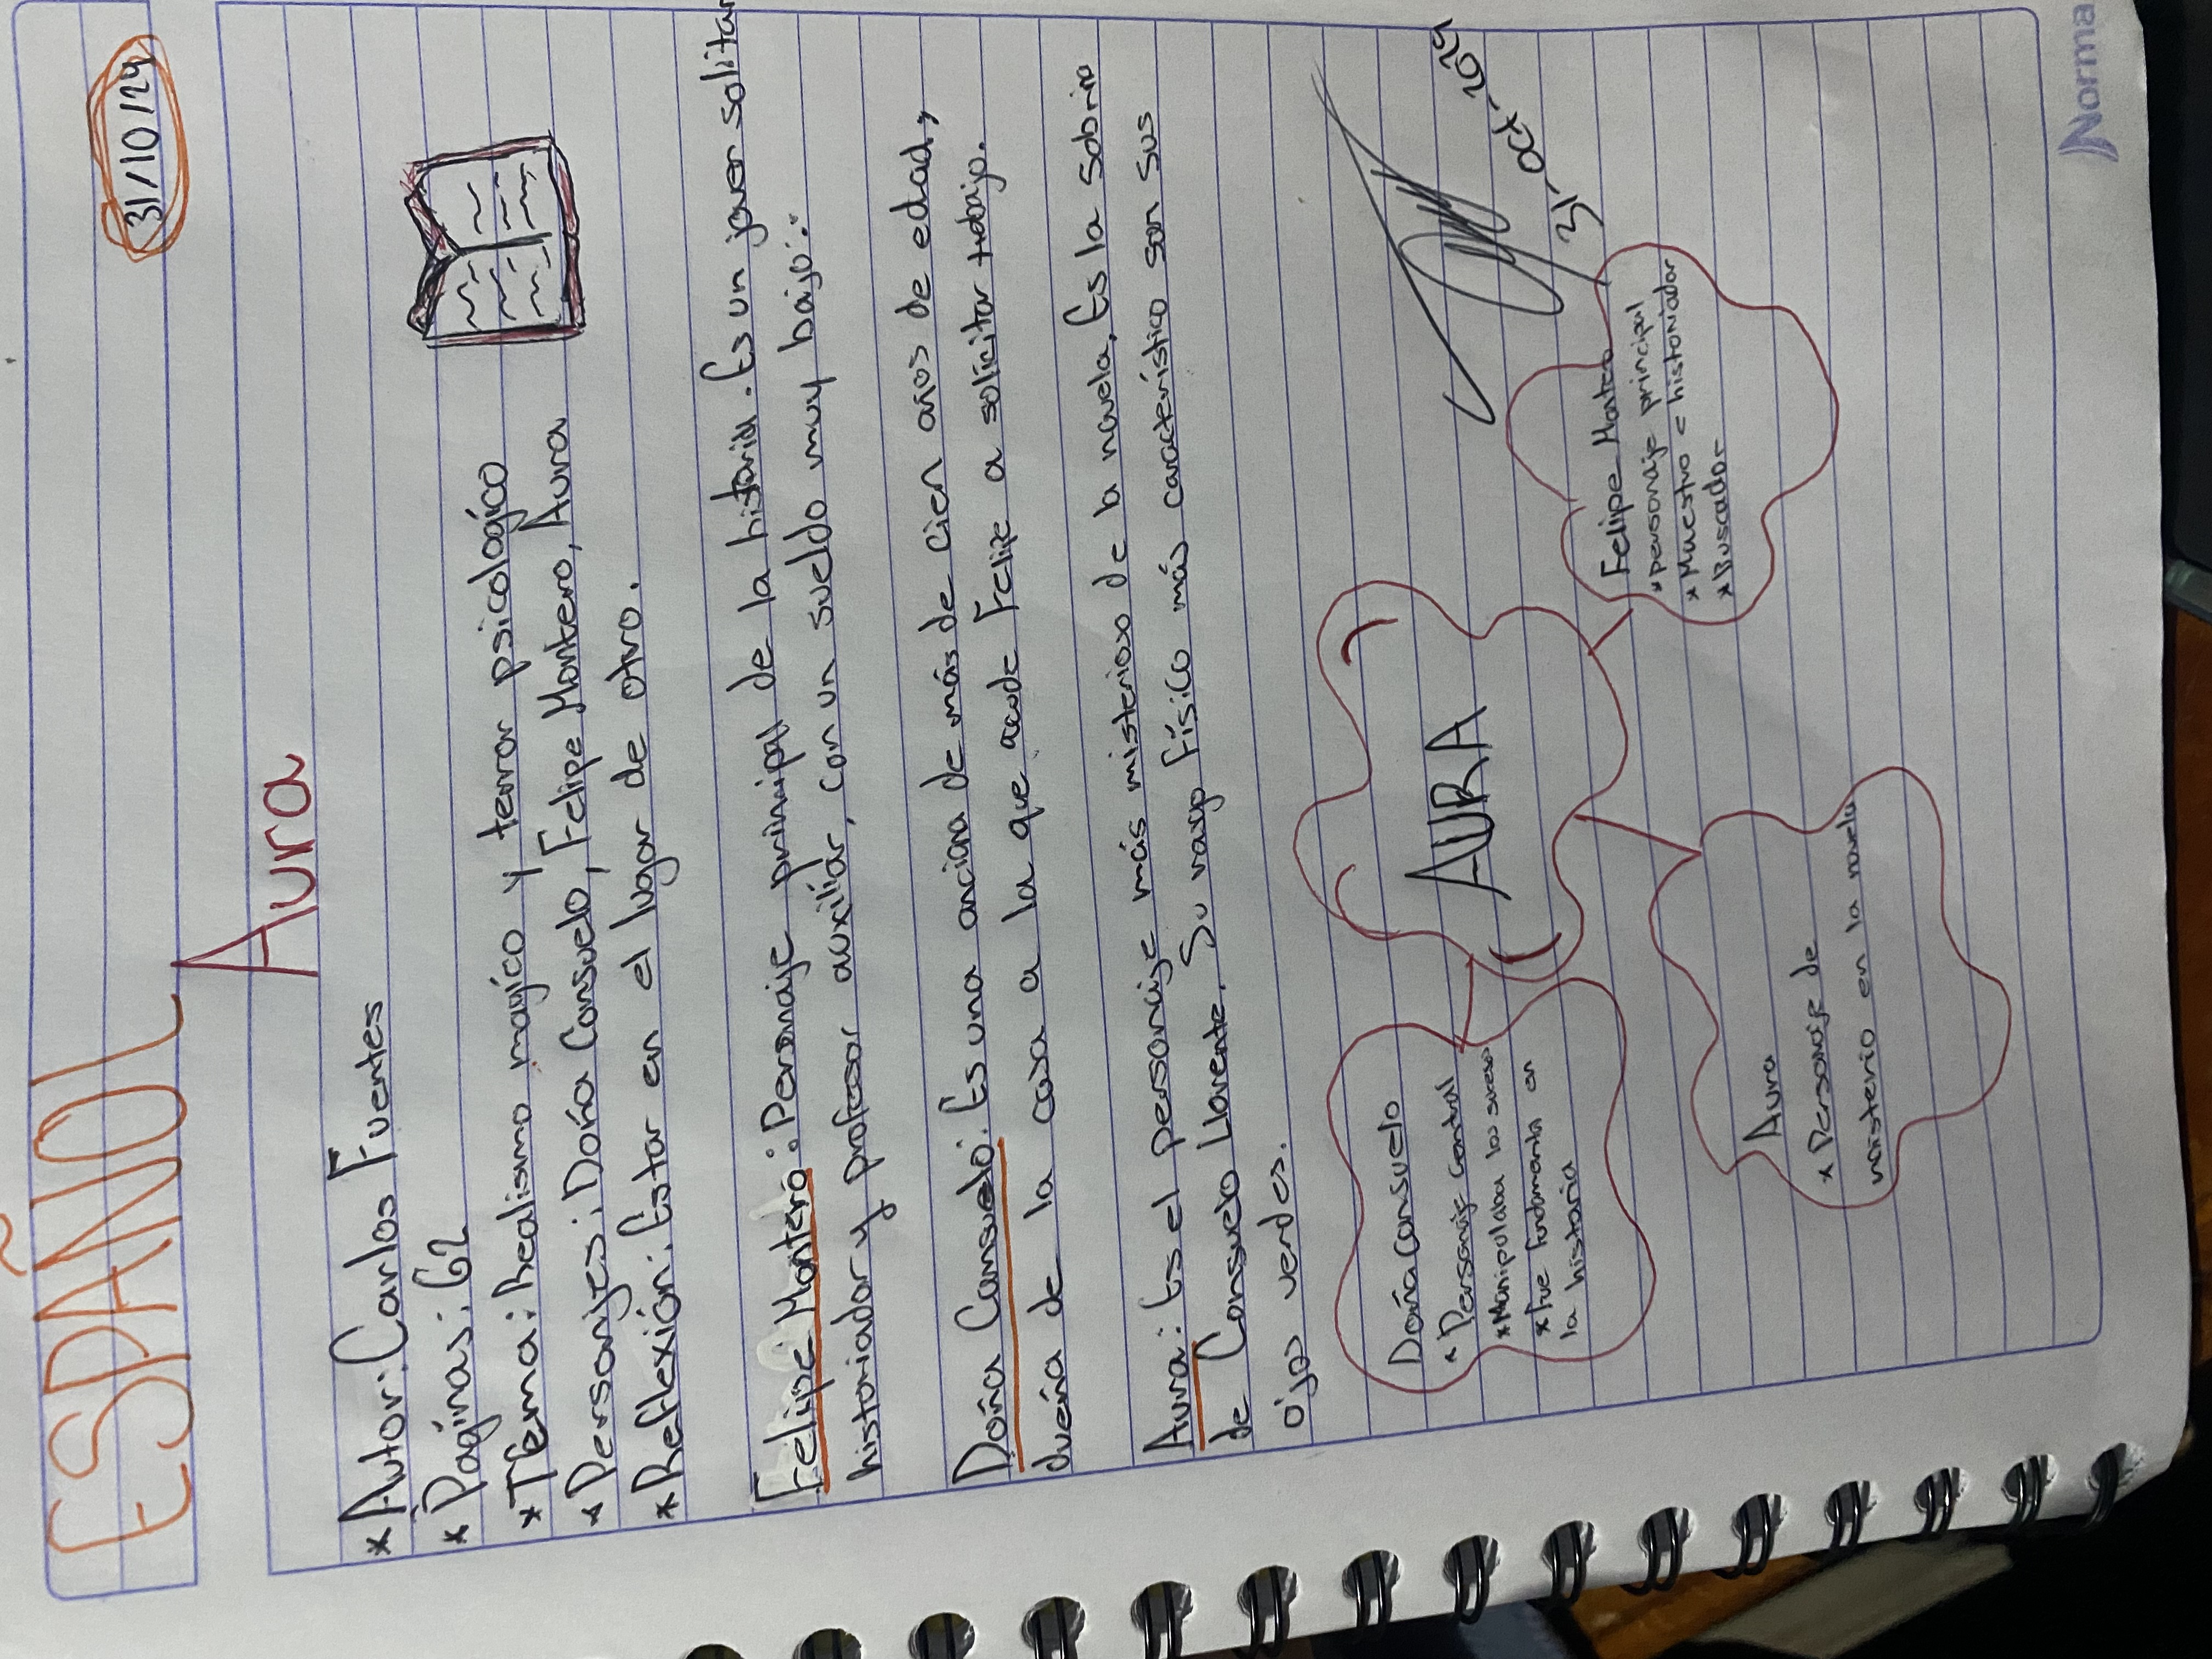 ESPAÑOL
31/10/24
Aura
* Autor: Carlos Fuentes
* Paginas: 62
* Tema: Realismo magíco y terror psicologíco
* Personajes: Doña Consuelo, Felipe Montero, Aura
* Reflexión: Estar en el lugar de otro.
Felipe Montero: Personaje principal de la historia. Es un joven solitar
historiador y profesor auxiliar, con un sueldo muy bajo.
Doña Consuelo: Es una anciana de más de cien años de edad,
dueña de la casa a la que acude Felipe a solicitar trabajo.
Aura: Es el personaje más misterioso de la novela, Es la sobrina
de Consuelo Llorente. Su rasgo físico más característico son sus
ojos verdes.
31, oct, 2024
AURA
Doña Consuelo
* Personaje central
* Manipulaba los
* Fue fundamental en
la historia
Felipe Montero
* personaje principal
* Maestro e historiador
* Buscador
Aura
* Personaje de
misterio en la novela
Norma